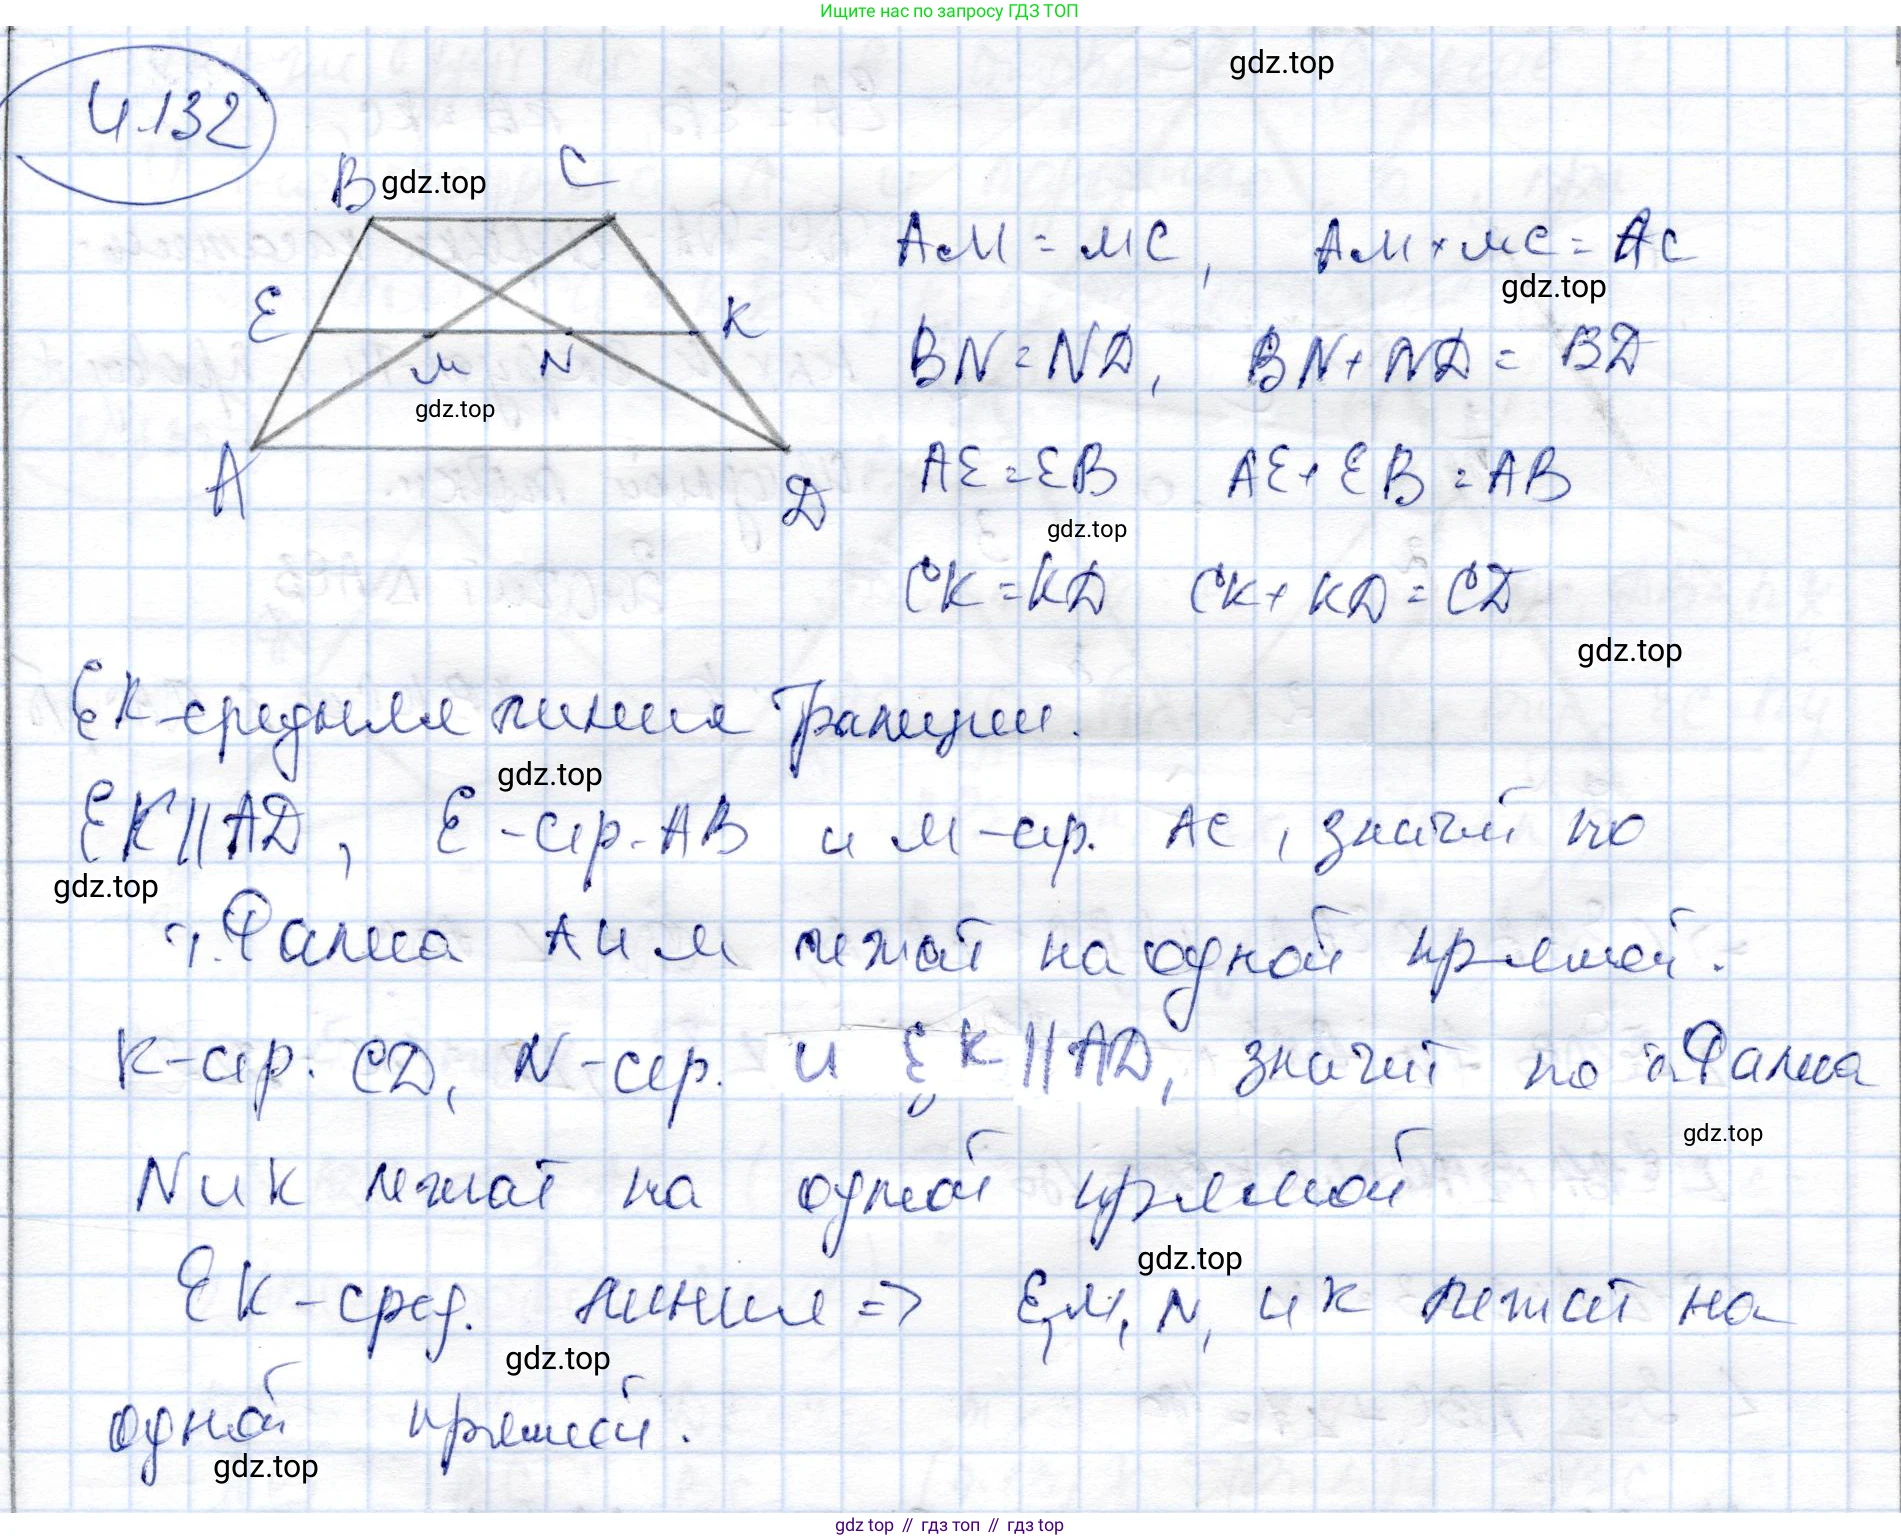 Ищите нас по запросу ГДЗ ТОП
gdz.top
4.132
B gdz.top C
AM = MC, AM + MC = AC
gdz.top
E K
M N
BN = ND, BN + ND = BD
gdz.top
AE = EB AE + EB = AB
A D
gdz.top
CK = KD CK + KD = CD
gdz.top
EK - средняя линия трапеции.
gdz.top
EK || AD, E - сер. AB и M - сер. AC, значит по
gdz.top
т. Фалеса и M лежат на одной прямой.
K - сер. CD, N - сер. и EK || AD, значит по т. Фалеса
gdz.top
N и K лежат на одной прямой
gdz.top
EK - сред. линия => E, M, N, и K лежат на
gdz.top
одной прямой.
gdz.top
gdz top // гдз топ // гдз top